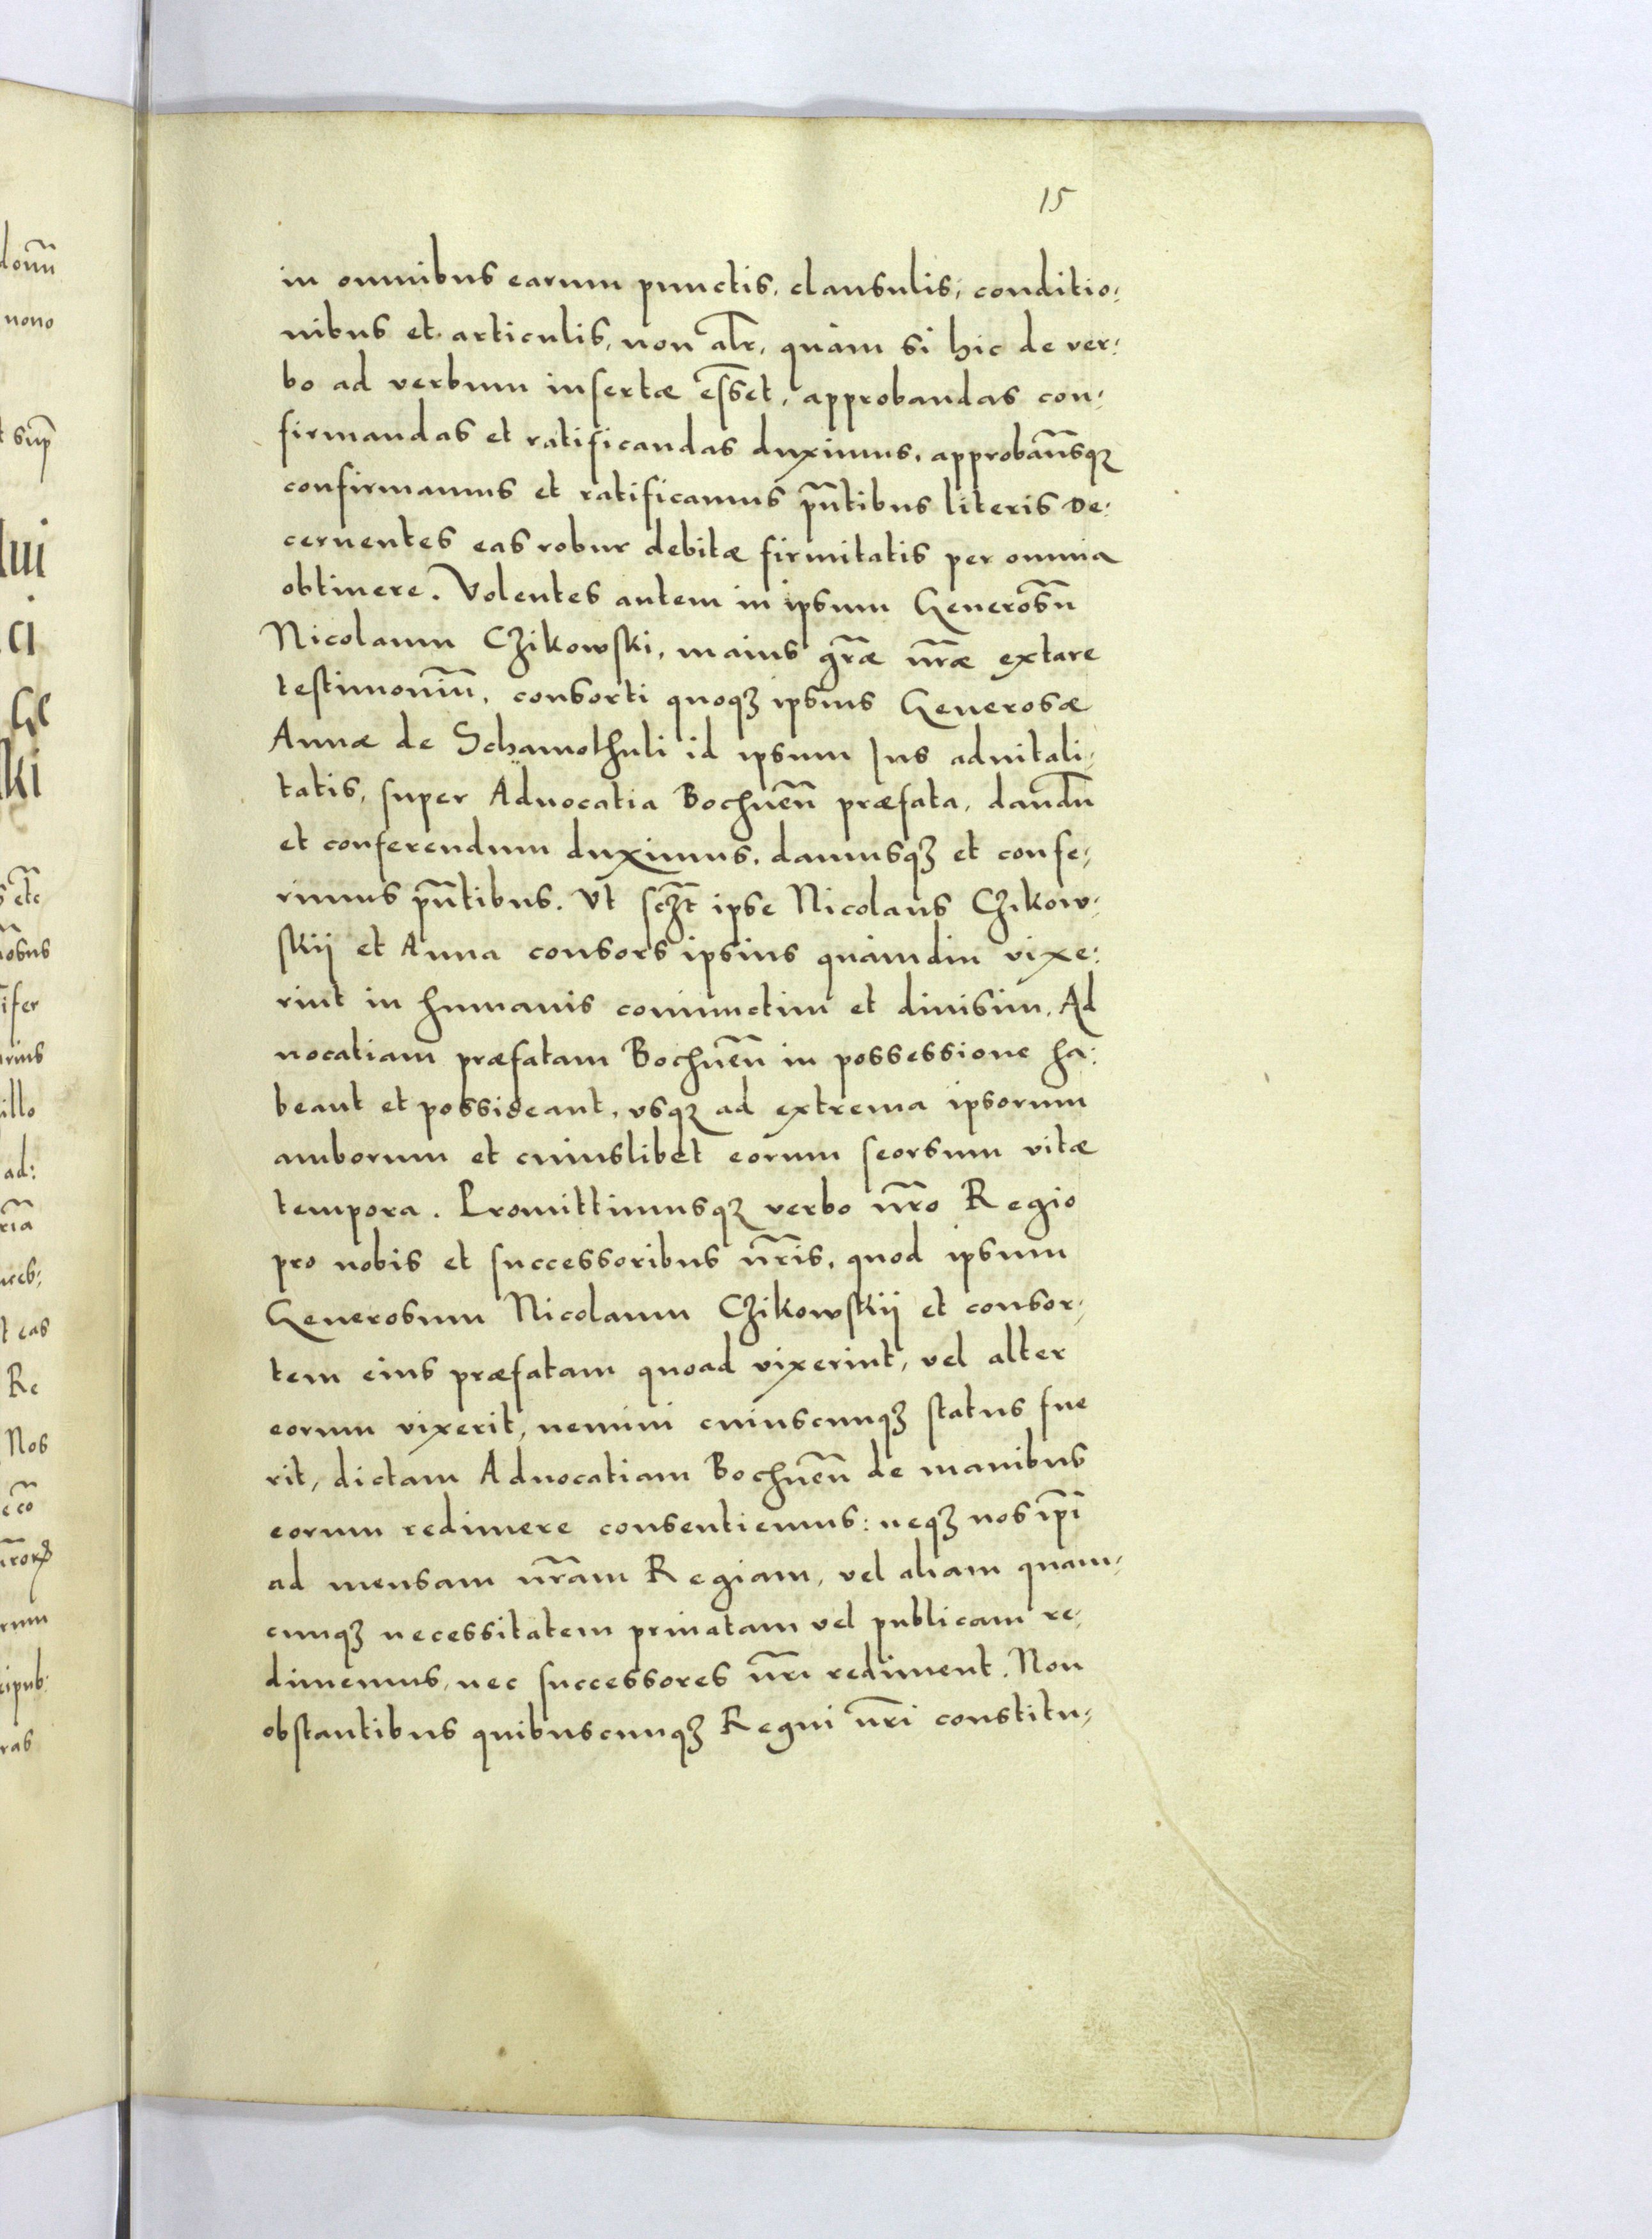 15
in omnibus earum punctis, clausulis, conditio:
nibus et articulis, non alr̃, quàm si hic de ver:
bo ad verbum insertæ es̃set, approbandas con:
firmandas et ratificandas duximus, approbam̃sqꝫ
confirmamus et ratificamus pñtibus literis De:
cernentes eas robur debitæ firmitatis per omnia
obtinere. Volentes autem in ipsum Generosũ
Nicolaum Czikowski, maius gr̃æ nr̃æ extare
testimoniũ, consorti quoqꝫ ipsius Generosæ
Annæ de Schamothuli id ipsum Jus aduitali:
tatis, super Aduocatia Bochneñ præfata, dandũ
et conferendum duximus, damusqꝫ et confe:
rimus pñtibus. Vt sczt̃ ipse Nicolaus Czikow:
skii et Anna consors ipsius quàmdiu vixe:
rint in humanis coniunctim et diuisim, Ad
uocatiam præfatam Bochneñ in possessione ha:
beant et possideant, vsqꝫ ad extrema ipsorum
amborum et cuiuslibet eorum seorsum vitæ
tempora. Promittimusqꝫ verbo nr̃o Regio
pro nobis et successoribus nr̃is, quod ipsum
Generosum Nicolaum Czikowskii et consor:
tem eius præfatam quoad vixerint, vel alter
eorum vixerit, nemini cuiuscunqꝫ status fue
rit, dictam Aduocatiam Bochneñ de manibus
eorum redimere consentiemus: neqꝫ nos ip̃i
ad mensam nr̃am Regiam, vel aliam quam:
cunqꝫ necessitatem priuatam vel publicam re:
dimemus, nec successores nr̃i rediment. Non
obstantibus quibuscunqꝫ Regni nr̃i constitu: